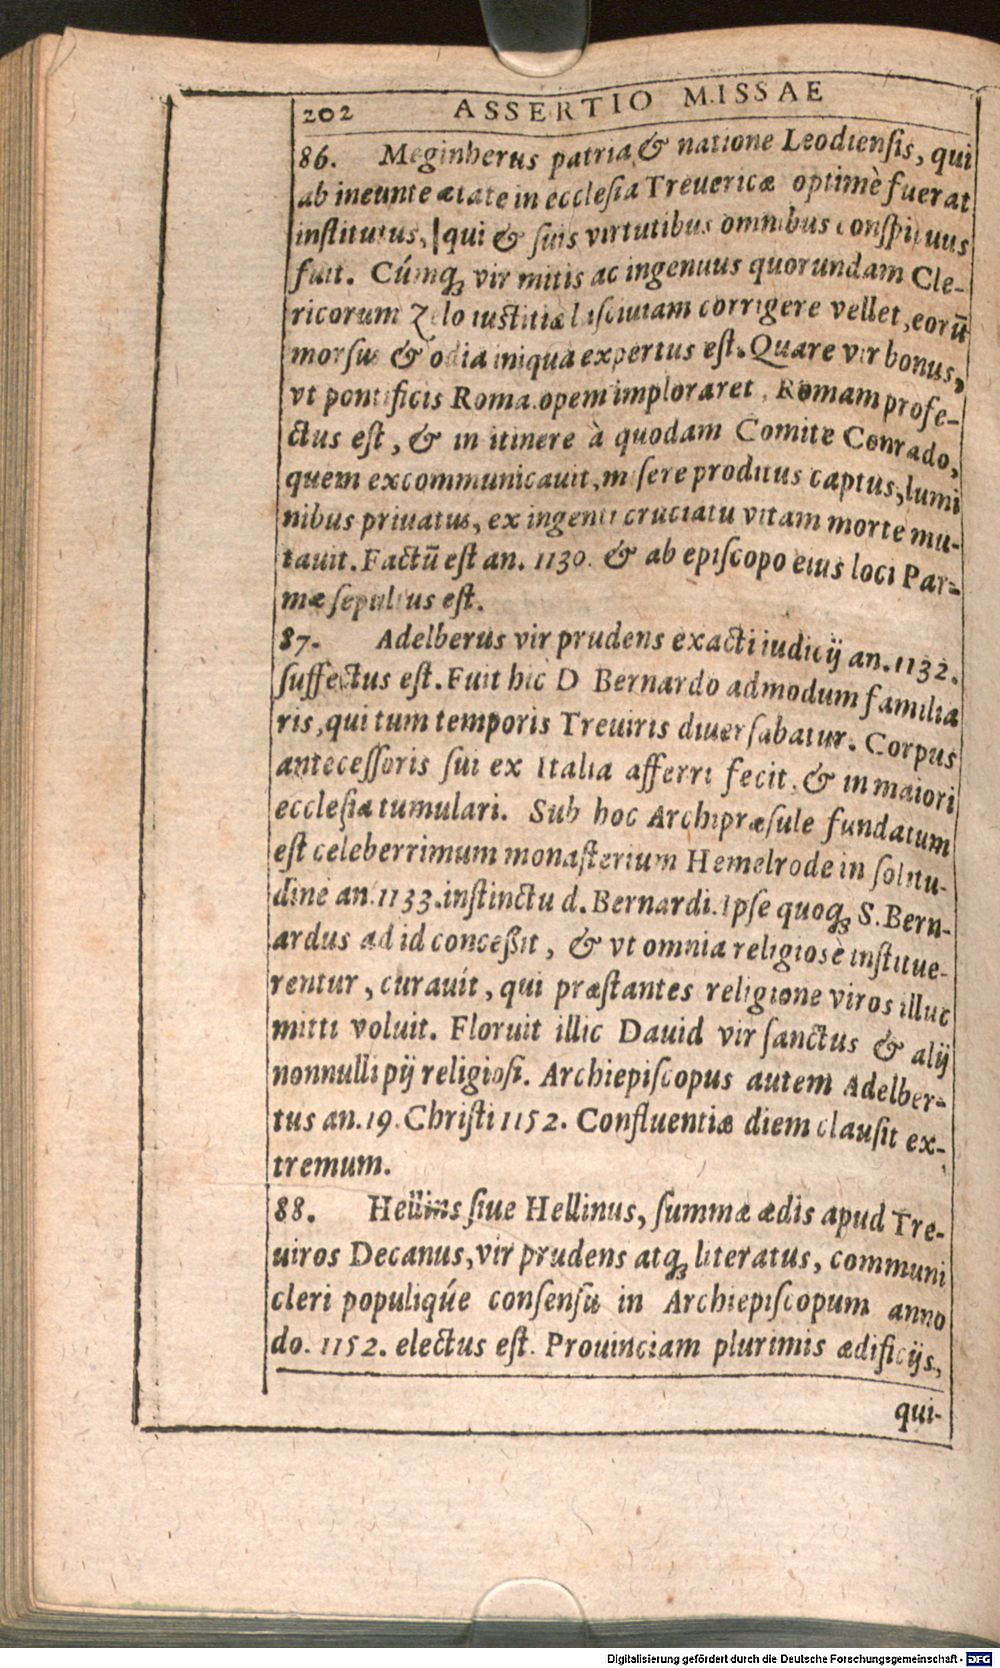 202 ASSERTIO MISSAE
86. Meginherus patria & natione Leodiensis, qui
ab ineunte ætate in ecclesia Treuericæ optimè fuerat
institutus, qui & suis virtutibus omnibus conspicuus
fuit. Cúmq; vir mitis ac ingenuus quorundam Cle-
ricorum Zelo iustitiæ lasciuiam corrigere vellet, eorū
morsus & odia iniqua expertus est. Quare vir bonus,
vt pontificis Roma. opem imploraret, Romam profe-
ctus est, & in itinere à quodam Comite Conrado,
quem excommunicauit, misere proditus captus, lumi
nibus priuatus, ex ingenti cruciatu vitam morte mu-
tauit. Factū est an. 1130. & ab episcopo eius loci Par-
mæ sepultus est.
87. Adelberus vir prudens exacti iudicij an. 1132.
suffectus est. Fuit hic D Bernardo admodum familia
ris, qui tum temporis Treuiris diuersabatur. Corpus
antecessoris sui ex Italia afferri fecit, & in maiori
ecclesia tumulari. Sub hoc Archipræsule fundatum
est celeberrimum monasterium Hemelrode in solitu-
dine an. 1133. instinctu d. Bernardi. Ipse quoq; S. Bern-
ardus ad id concessit, & vt omnia religiosè institue-
rentur, curauit, qui præstantes religione viros illuc
mitti voluit. Floruit illic Dauid vir sanctus & alij
nonnulli pij religiosi. Archiepiscopus autem Adelber-
tus an. 19. Christi 1152. Confluentiæ diem clausit ex-
tremum.
88. siue Hellinus, summæ ædis apud Tre-
uiros Decanus, vir prudens atq; literatus, communi
cleri populiqúe consensu in Archiepiscopum anno
do. 1152. electus est. Prouinciam plurimis ædificijs,
qui-
Digitalisierung gefördert durch die Deutsche Forschungsgemeinschaft - DFG